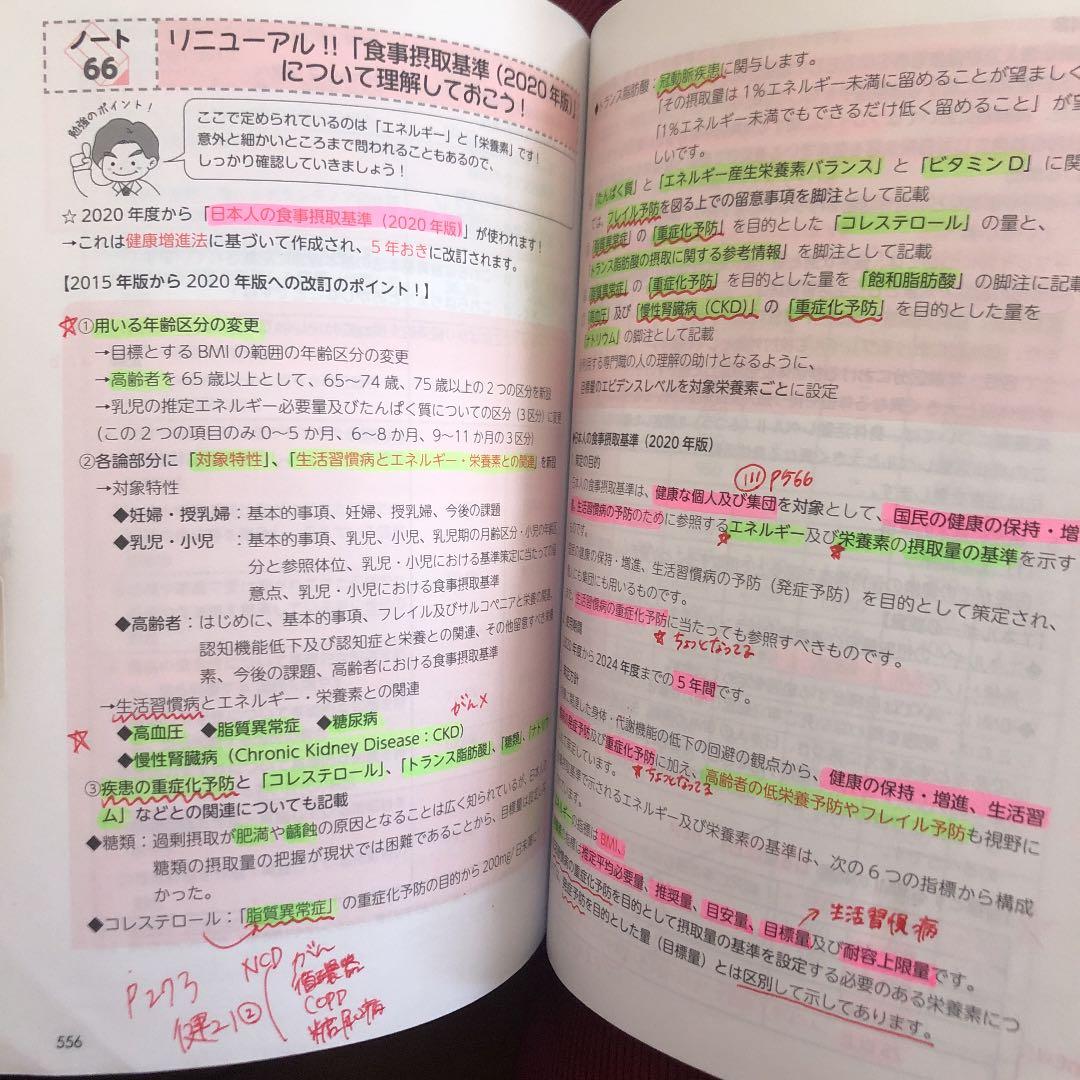 ノート
66
リニューアル!!「食事摂取基準(2020年版)」
について理解しておこう!
勉強のポイント!
ここで定められているのは「エネルギー」と「栄養素」です!
意外と細かいところまで問われることもあるので、
しっかり確認していきましょう!
☆2020年度から「日本人の食事摂取基準(2020年版)」が使われます!
→これは健康増進法に基づいて作成され、5年おきに改訂されます。
【2015年版から2020年版への改訂のポイント!】
①用いる年齢区分の変更
→目標とするBMIの範囲の年齢区分の変更
→高齢者を65歳以上として、65~74歳、75歳以上の2つの区分を新設
→乳児の推定エネルギー必要量及びたんぱく質についての区分(3区分)に変更
(この2つの項目のみ0~5か月、6~8か月、9~11か月の3区分)
②各論部分に「対象特性」、「生活習慣病とエネルギー・栄養素との関連」を新設
→対象特性
◆妊婦・授乳婦:基本的事項、妊婦、授乳婦、今後の課題
◆乳児・小児 :基本的事項、乳児、小児、乳児期の月齢区分・小児の年齢区
分と参照体位、乳児・小児における基準策定に当たっての留
意点、乳児・小児における食事摂取基準
◆高齢者:はじめに、基本的事項、フレイル及びサルコペニアと栄養の関連、
認知機能低下及び認知症と栄養との関連、その他留意すべき栄養
素、今後の課題、高齢者における食事摂取基準
→生活習慣病とエネルギー・栄養素との関連
がん×
◆高血圧 ◆脂質異常症 ◆糖尿病
◆慢性腎臓病(Chronic Kidney Disease:CKD)
③疾患の重症化予防と「コレステロール」、「トランス脂肪酸」、「糖類」、「ナトリウ
ム」などとの関連についても記載
◆糖類:過剰摂取が肥満や齲蝕の原因となることは広く知られているが、日本人の
糖類の摂取量の把握が現状では困難であることから、目標量は設定しな
かった。
◆コレステロール:「脂質異常症」の重症化予防の目的から200mg/日未満に
P273
健21②
NCD
がん
循環器
COPD
糖尿病
556
トランス脂肪酸:冠動脈疾患に関与します。
「その摂取量は1%エネルギー未満に留めることが望ましく
「1%エネルギー未満でもできるだけ低く留めること」が望
しいです。
「たんぱく質」と「エネルギー産生栄養素バランス」と「ビタミンD」に関
ては、フレイル予防を図る上での留意事項を脚注として記載
「脂質異常症」の「重症化予防」を目的とした「コレステロール」の量と、
「トランス脂肪酸の摂取に関する参考情報」を脚注として記載
「脂質異常症」の「重症化予防」を目的とした量を「飽和脂肪酸」の脚注に記載
「高血圧」及び「慢性腎臓病(CKD)」の「重症化予防」を目的とした量を
「ナトリウム」の脚注として記載
利用する専門職の人の理解の助けとなるように、
目標量のエビデンスレベルを対象栄養素ごとに設定
日本人の食事摂取基準(2020年版)
策定の目的
111 P566
日本人の食事摂取基準は、健康な個人及び集団を対象として、国民の健康の保持・増
進、生活習慣病の予防のために参照するエネルギー及び栄養素の摂取量の基準を示す
ものです。
国民の健康の保持・増進、生活習慣病の予防(発症予防)を目的として策定され、
個人にも集団にも用いるものです。
また、生活習慣病の重症化予防に当たっても参照すべきものです。
ちょっとなってる
使用期間
2020年度から2024年度までの5年間です。
策定方針
に関連した身体・代謝機能の低下の回避の観点から、健康の保持・増進、生活習
慣病の発症予防及び重症化予防に加え、高齢者の低栄養予防やフレイル予防も視野に
入れて策定しています。
ちょっとなってる
食事摂取基準で示されるエネルギー及び栄養素の基準は、次の6つの指標から構成
エネルギーの指標はBMI、
栄養素の指標は推定平均必要量、推奨量、目安量、目標量及び耐容上限量です。
生活習慣病
生活習慣病の重症化予防を目的として摂取量の基準を設定する必要のある栄養素につ
いては、発症予防を目的とした量(目標量)とは区別して示してあります。